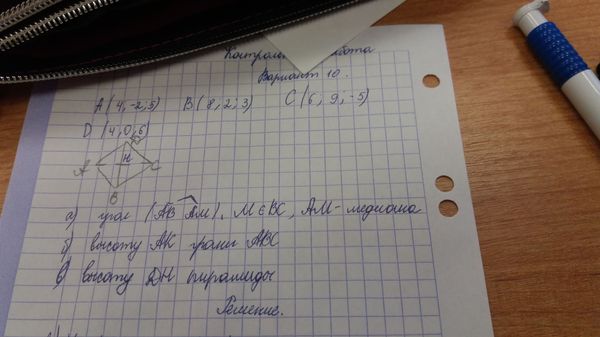 Вариант 10.
A (4,-2,5) B (8,2,3) C (6,9,-5)
D (4,0,6)
D
H
A C
B
а) угол (AB^AM), M∈BC, AM-медиана
б) высоту AK грани ABC
в) высоту DH пирамиды
Решение.